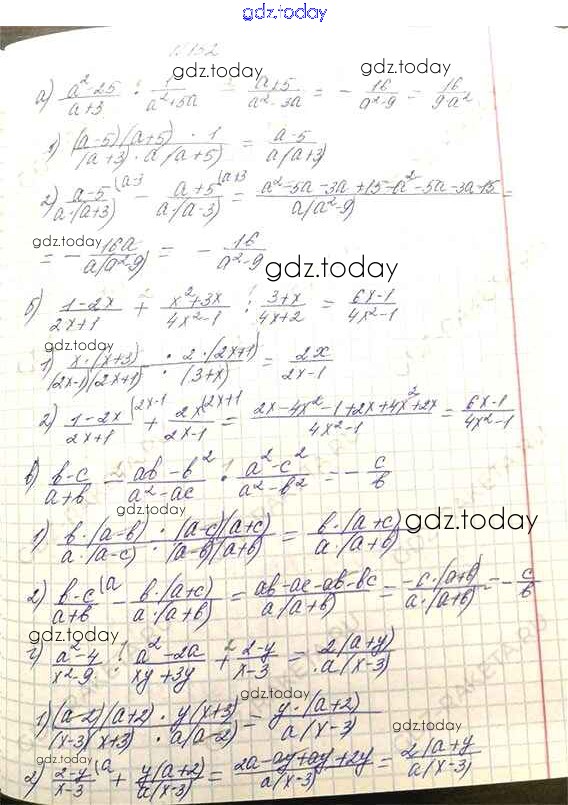 gdz.today
№ 152
gdz.today
а) (a²-25)/(a+3) : 1/(a²+5a) - (a+5)/(a²-3a) = - 16/(a²-9) = 16/(9-a²)
1) ((a-5)(a+5) · 1)/((a+3) · a(a+5)) = (a-5)/(a(a+3))
2) (a-5)/(a·(a+3)) (a-3 - (a+5)/(a·(a-3)) (a+3 = (a²-5a-3a+15-a²-5a-3a-15)/(a(a²-9)) =
gdz.today
= - 16a/(a(a²-9)) = - 16/(a²-9)
gdz.today
б) (1-2x)/(2x+1) + (x²+3x)/(4x²-1) : (3+x)/(4x+2) = (6x-1)/(4x²-1)
gdz.today
1) (x·(x+3) · 2·(2x+1))/((2x-1)(2x+1) · (3+x)) = 2x/(2x-1)
2) (1-2x)/(2x+1) (2x-1 + 2x/(2x-1) (2x+1 = (2x-4x²-1+2x+4x²+2x)/(4x²-1) = (6x-1)/(4x²-1)
в) (b-c)/(a+b) - (ab-b²)/(a²-ac) : (a²-c²)/(a²-b²) = - c/b
gdz.today
1) (b·(a-b) · (a-c)(a+c))/(a·(a-c) · (a-b)(a+b)) = (b·(a+c))/(a·(a+b))
2) (b-c)/(a+b) (a - (b·(a+c))/(a·(a+b)) = (ab-ac-ab-bc)/(a(a+b)) = (-c·(a+b))/(a·(a+b)) = - c/b
gdz.today
г) (a²-4)/(x²-9) : (a²-2a)/(xy+3y) + (2-y)/(x-3) = (2(a+y))/(a(x-3))
1) ((a-2)(a+2) · y(x+3))/((x-3)(x+3) · a(a-2)) = (y·(a+2))/(a(x-3))
gdz.today
2) (2-y)/(x-3) (a + (y(a+2))/(a(x-3)) = (2a-ay+ay+2y)/(a(x-3)) = (2(a+y)/(a(x-3))
gdz.today